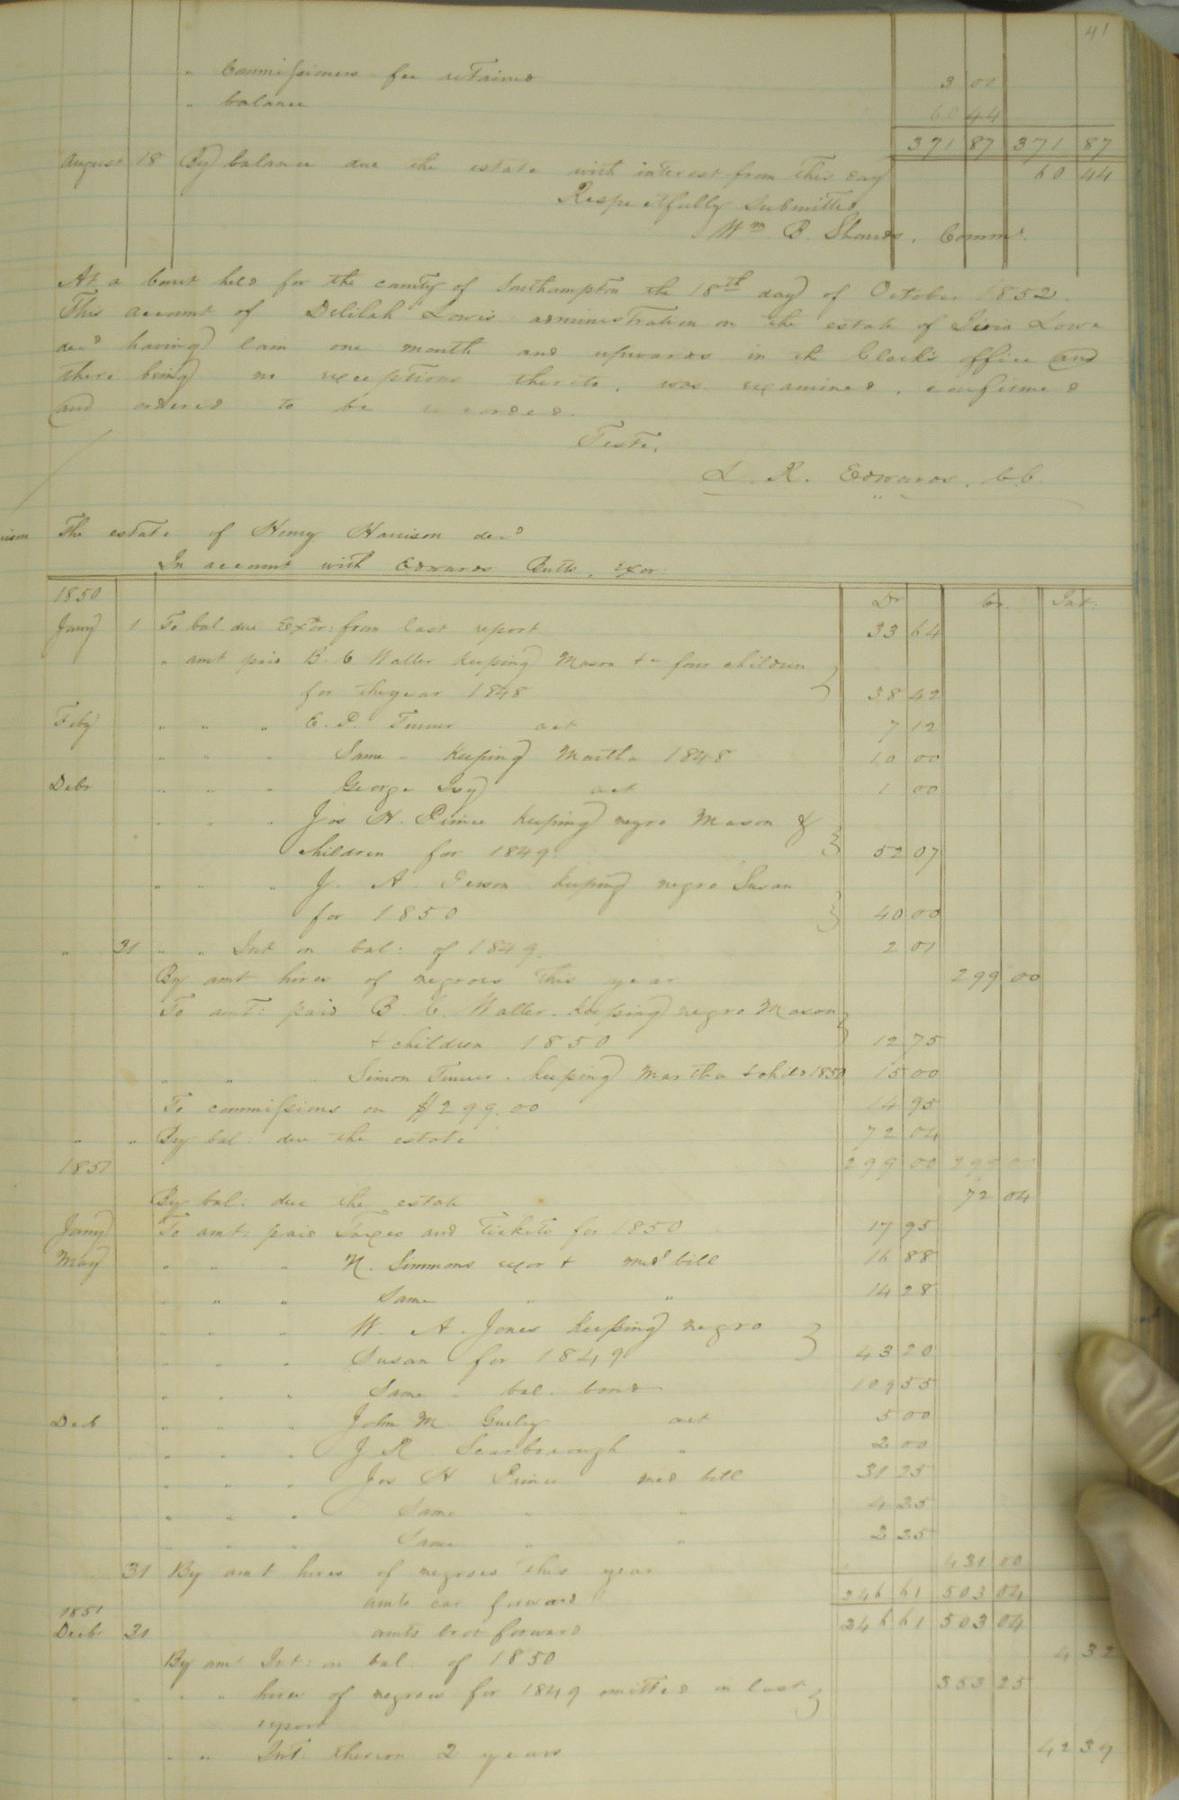 41
" Commissioners fee retained 3 00
" balance 60 44
371 87 371 87
August 18 By balance due the estate with interest from this day 60 44
Respectfully submitted
Wm B. Shands, Commr.
At a Court held for the county of Southampton the 18th day of October 1852.
This account of Delilah Lowe's administration on the estate of Lowe
decd having lain one month and upwards in the Clerk's office and
there being no exceptions thereto, was examined, confirmed
and ordered to be recorded.
Teste,
L. R. Edwards, C.C.
The estate of Henry Harrison decd
In account with Edwards Butts, Exor.
1850 Dr Cr. Int:
Jany 1 To bal due Exor: from last report 33 64
" amt paid B. C Waller keeping Mason & four children
for the year 1848 38 42
Feby " " " E. P. Turner act 7 12
" " " Same - keeping Martha 1848 10 00
Decbr " " " George Ivy act 1 00
" " " Jos H. Prince keeping negro Mason &
children for 1849 52 07
" " " J. A. keeping negro Susan
for 1850 40 00
" 31 " " Int on bal: of 1849 2 01
By amt hires of negroes this year 299 00
To amt: paid B. C. Waller keeping negro Mason
& children 1850 12 75
" " Simon Turner. keeping Martha & child 1850 15 00
To commissions on $299.00 14 95
" " By bal: due the estate 72 04
1851 299 00 299 00
By bal. due the estate 72 04
Jany To amt: paid Taxes and Tickets for 1850 17 95
May " " " N. Simmons exor & med bill 16 88
" " " Same " " 14 28
" " " W. A. Jones keeping negro
" " " Susan for 1849 43 20
" " " Same " bal. bond 109 55
Decb " " " John M. Gurley act 5 00
" " " J R Scarborough " 2 00
" " " Jos H Prince med bill 31 25
" " " Same " " 4 25
" " " Same " " 2 25
31 By amt hires of negroes this year 431 00
amts car forward 246 61 503 04
1851
Decbr 31 amts brot forward 246 61 503 04
By amt Int: on bal. of 1850 4 32
" " " " hires of negroes for 1849 omitted in last
report 353 25
" " Int. thereon 2 years 42 39